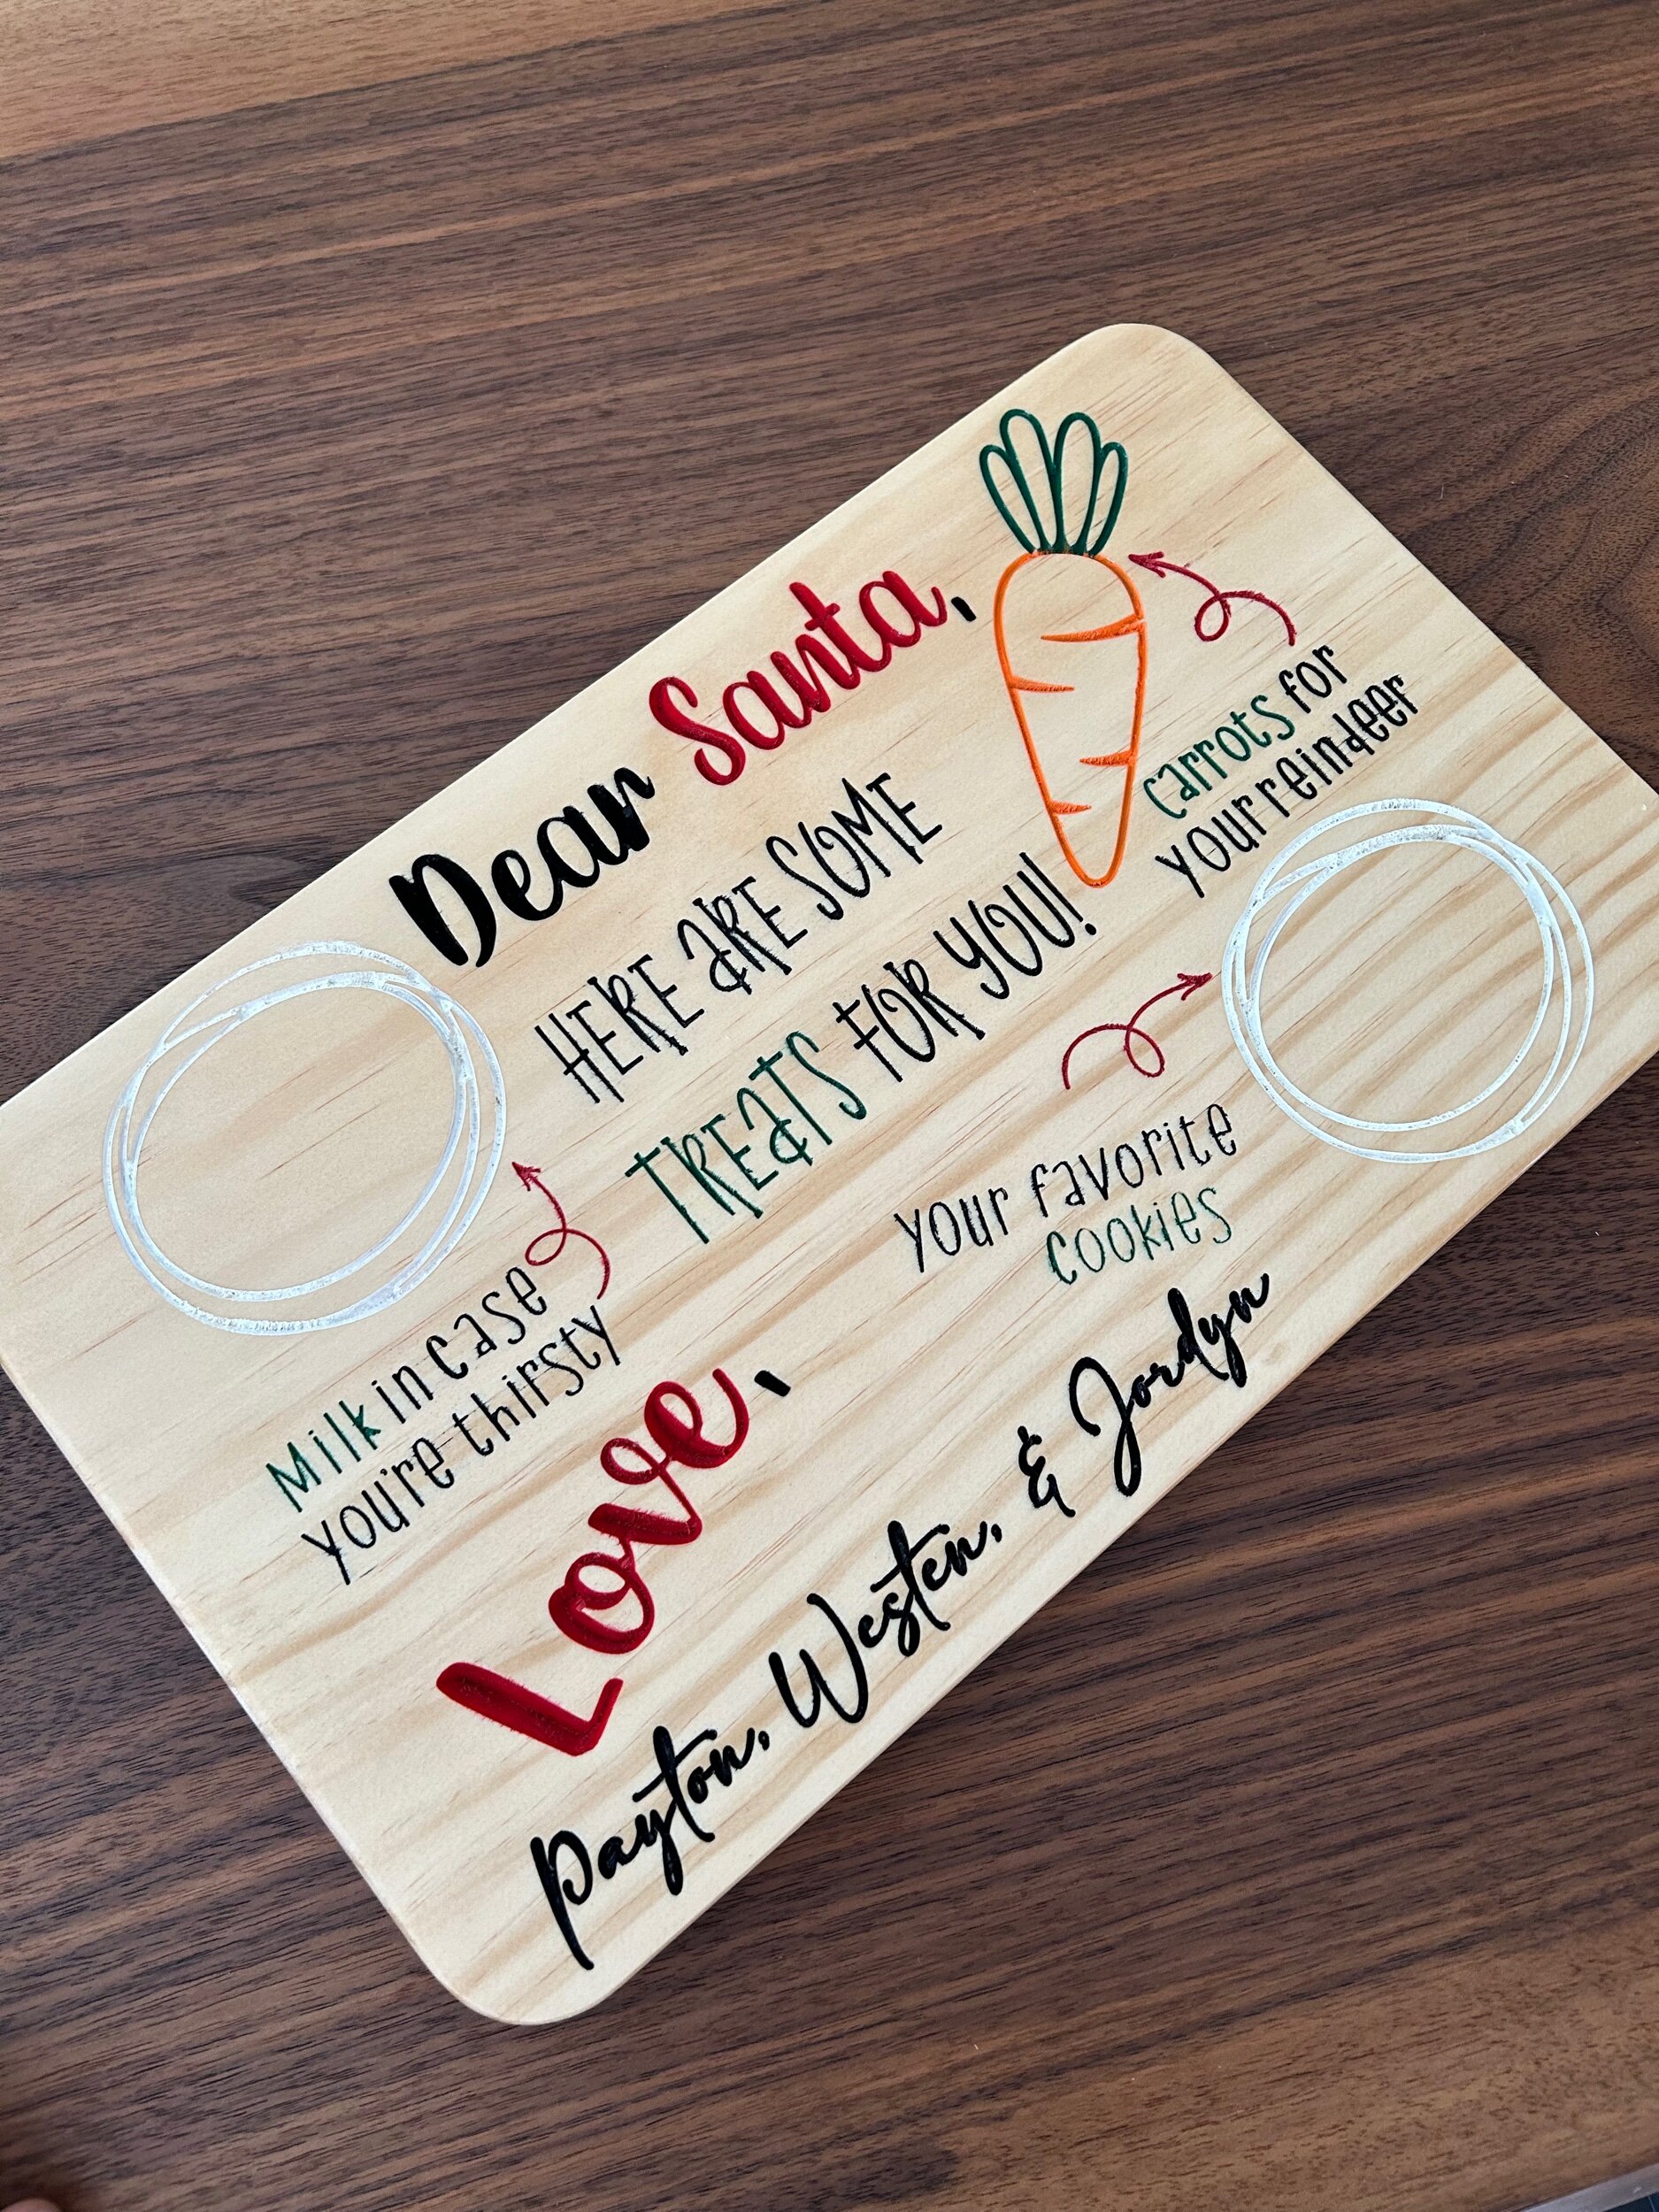 Dear Santa,
HERE ARE SOME
TREATS FOR YOU!
carrots for
your reindeer
your favorite
cookies
Milk in case
you're thirsty
Love,
Payton, Westen, & Jordyn